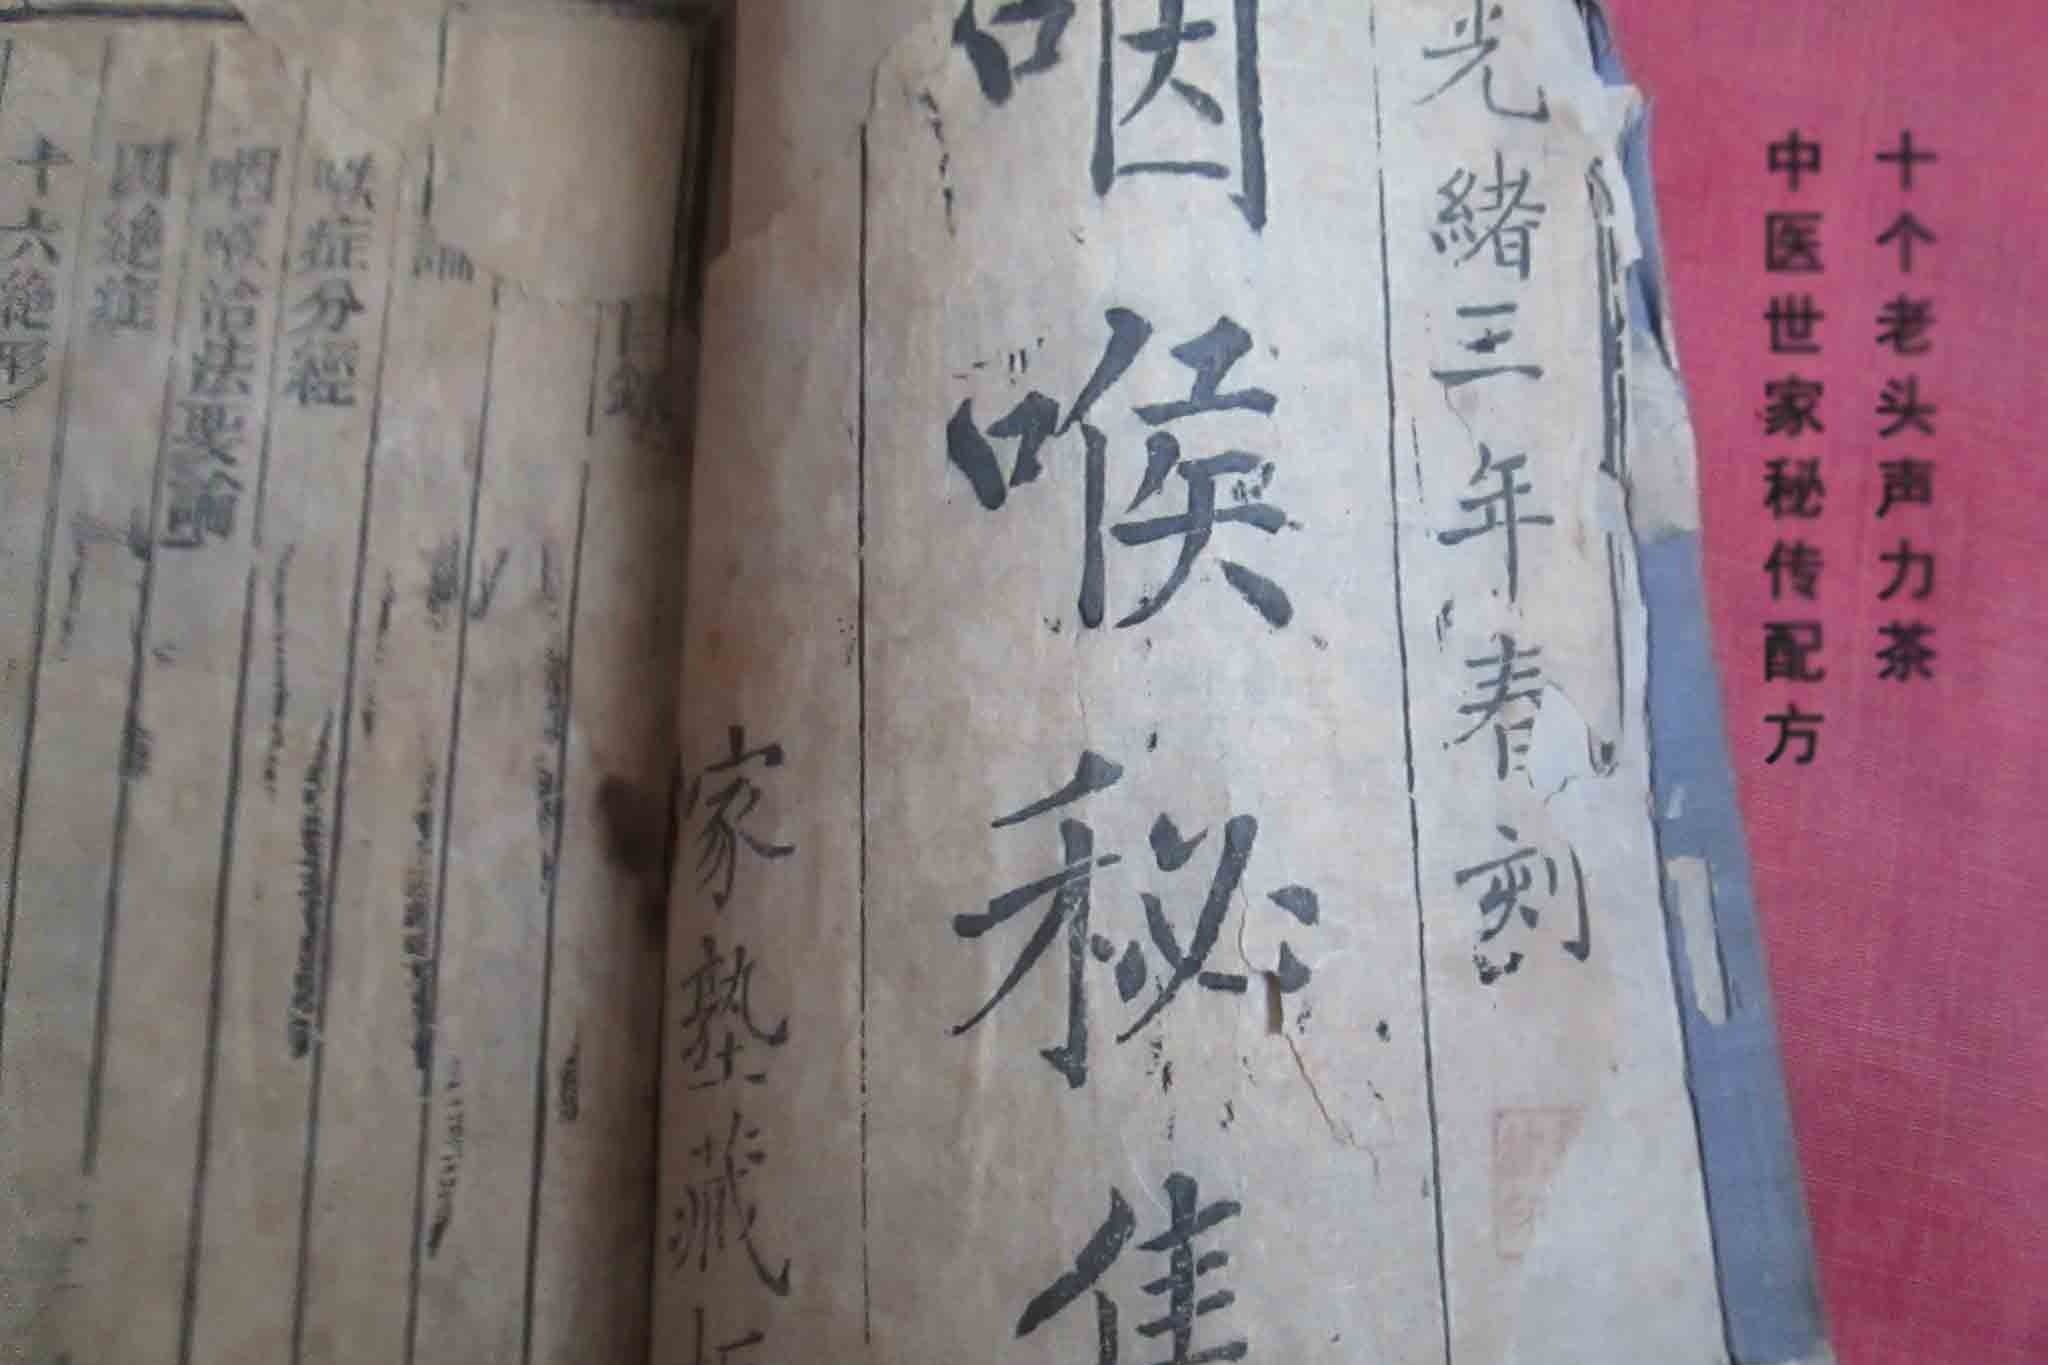 十个老头声力茶
中医世家秘传配方
光緒三年春刻
咽喉秘集
家塾藏
目錄
喉症分經
咽喉治法要論
四絶症
十六絶形